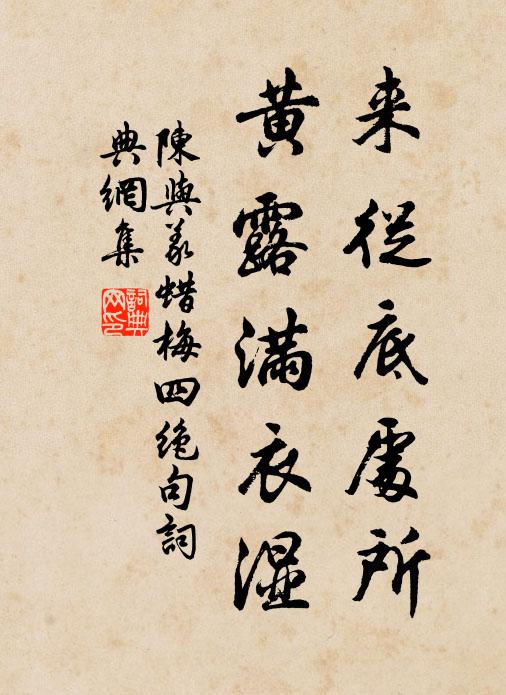 来從底處所
黄露滿衣濕
陳與義蜡梅四绝句詞
典網集
詞典网印